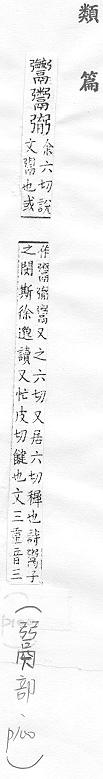 類篇
鬻
余六切說
文也或
作又之六切又居六切穉也詩鬻子
之閔斯徐邈讀又忙皮切鍵也文三重音三
(䰜部、p100)